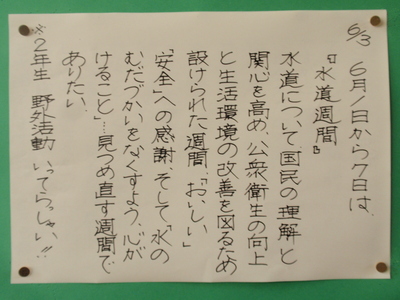 6/3 6月1日から7日は、
『水道週間』
水道について国民の理解と
関心を高め、公衆衛生の向上
と生活環境の改善を図るため
設けられた週間。「おいしい」
「安全」への感謝、そして「水の
むだづかいをなくすよう、心が
けること」…見つめ直す週間で
ありたい。
※2年生 野外活動 いってらっしゃい!!